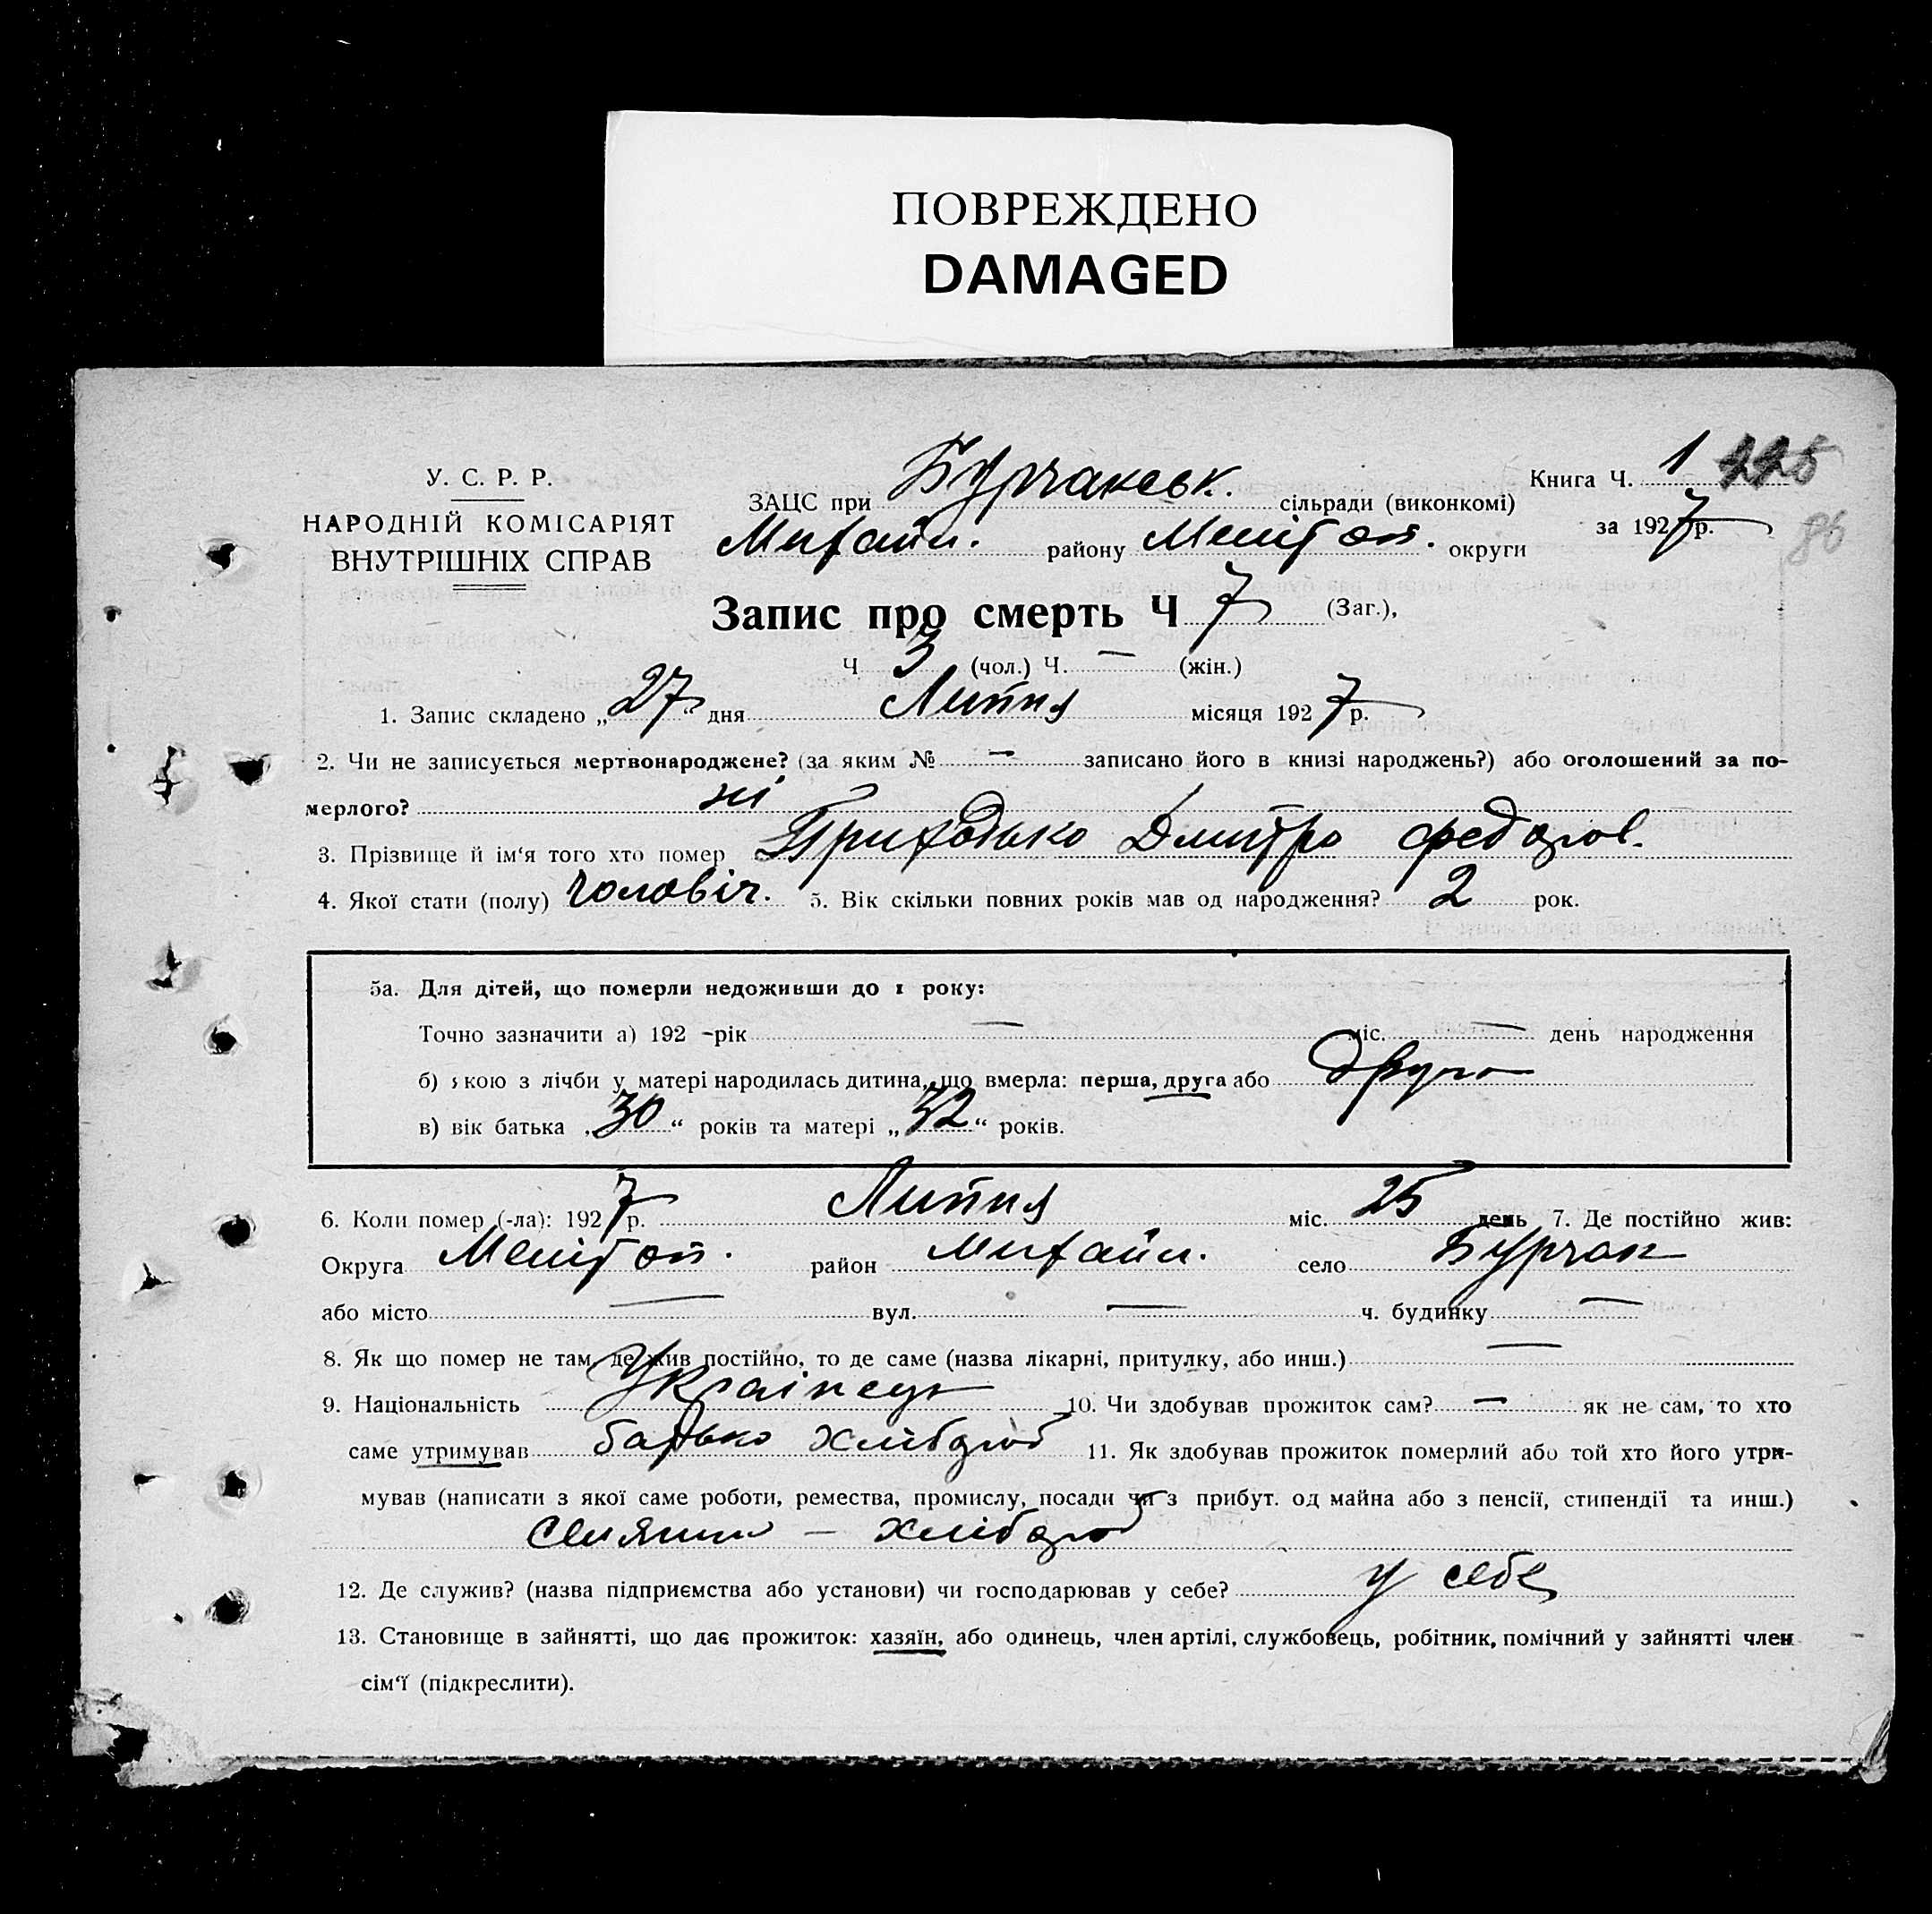 ПОВРЕЖДЕНО
DAMAGED
У. С. Р. Р.
НАРОДНІЙ КОМІСАРІЯТ
ВНУТРІШНІХ СПРАВ
ЗАЦС при Бурчакськ. сільради (виконкомі)
Михайл. району Мелітоп. округи
Книга Ч. 1 225
за 1927 р.
86
Запис про смерть Ч 7 (Заг.),
Ч 3 (чол.) Ч. — (жін.)
1. Запис складено „27“ дня Липня місяця 1927 р.
2. Чи не записується мертвонароджене? (за яким № — записано його в книзі народжень?) або оголошений за по-
мерлого? ні
3. Прізвище й ім‘я того хто помер Приходько Дмитро Федоров.
4. Якої стати (полу) чоловіч. 5. Вік скільки повних років мав од народження? 2 рок.
5а. Для дітей, що померли недоживши до 1 року:
Точно зазначити а) 192 -рік — міс. — день народження
б) якою з лічби у матері народилась дитина, що вмерла: перша, друга або друга
в) вік батька „30“ років та матері „32“ років.
6. Коли помер (-ла): 1927 р. Липня міс. 25 день 7. Де постійно жив:
Округа Мелітоп. район Михайл. село Бурчак
або місто — вул. — ч. будинку —
8. Як що помер не там, де жив постійно, то де саме (назва лікарні, притулку, або инш.) —
9. Національність Українець 10. Чи здобував прожиток сам? — як не сам, то хто
саме утримував батько хлібороб 11. Як здобував прожиток померлий або той хто його утри-
мував (написати з якої саме роботи, ремества, промислу, посади чи з прибут. од майна або з пенсії, стипендії та инш.)
— хлібороб
12. Де служив? (назва підприємства або установи) чи господарював у себе? у себе
13. Становище в зайнятті, що дає прожиток: хазяїн, або одинець, член артілі, службовець, робітник, помічний у зайнятті член
сім‘ї (підкреслити).